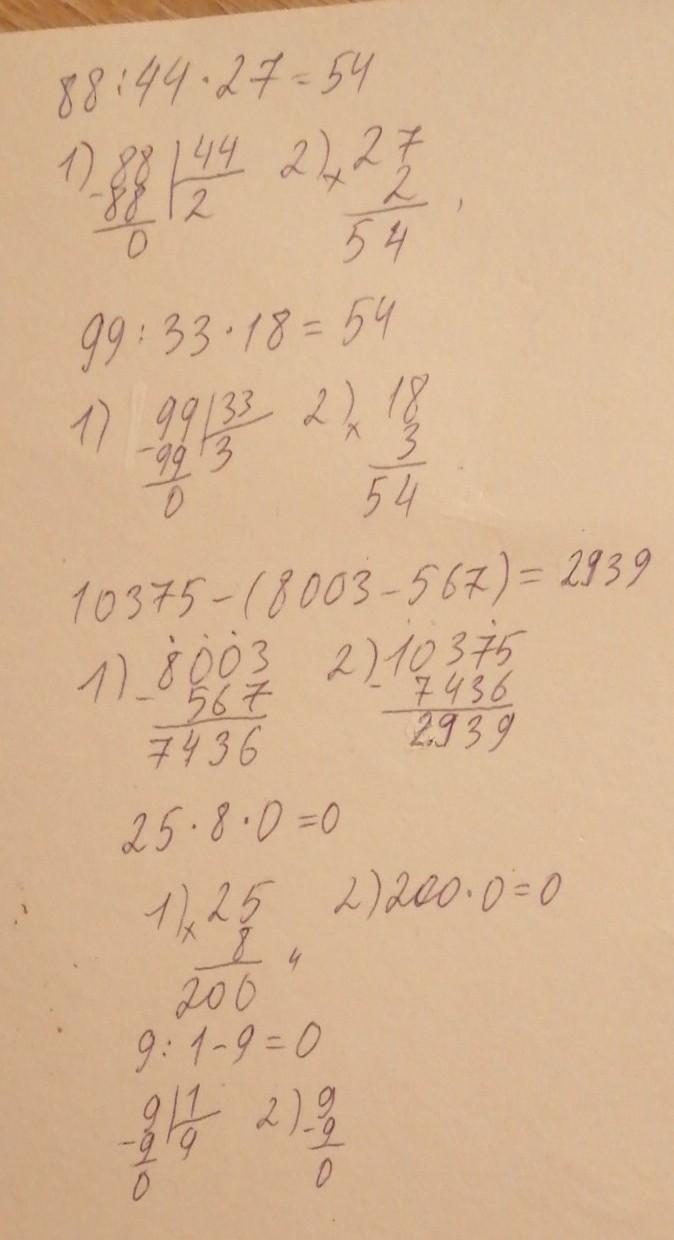 88:44·27=54
1) 88 | 44 2) × 27
-88 | 2 2
0 54
99:33·18=54
1) 99 | 33 2) × 18
-99 | 3 3
0 54
10375-(8003-567)=2939
1) 8003 2) 10375
- 567 - 7436
7436 2939
25·8·0=0
1) × 25 2) 200·0=0
8
200
9:1-9=0
9 | 1 2) 9
-9 | 9 -9
0 0